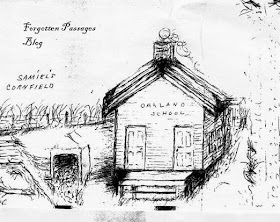 Forgotten Passages
Blog
SAMIEL'S
CORNFIELD
OAKLAND
SCHOOL